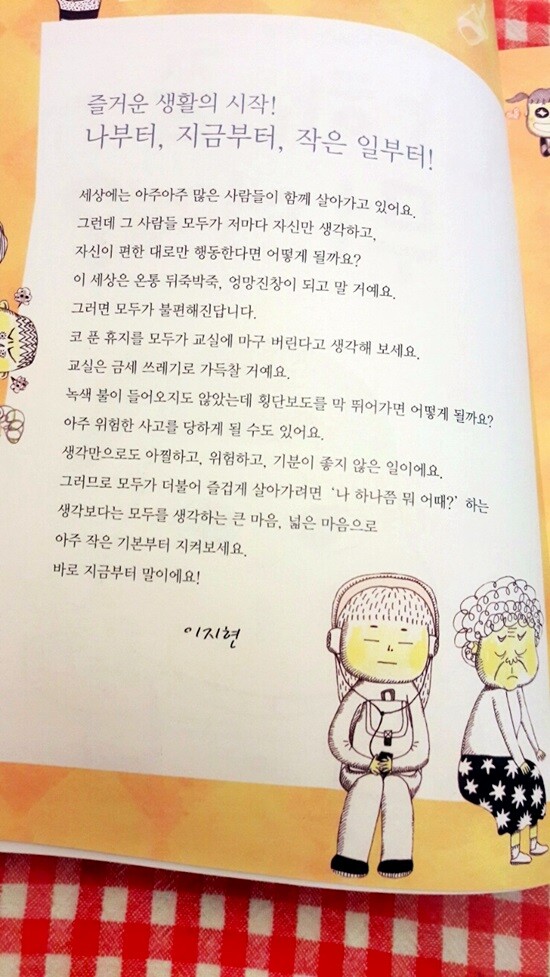 즐거운 생활의 시작!
나부터, 지금부터, 작은 일부터!
세상에는 아주아주 많은 사람들이 함께 살아가고 있어요.
그런데 그 사람들 모두가 저마다 자신만 생각하고,
자신이 편한 대로만 행동한다면 어떻게 될까요?
이 세상은 온통 뒤죽박죽, 엉망진창이 되고 말 거예요.
그러면 모두가 불편해진답니다.
코 푼 휴지를 모두가 교실에 마구 버린다고 생각해 보세요.
교실은 금세 쓰레기로 가득찰 거예요.
녹색 불이 들어오지도 않았는데 횡단보도를 막 뛰어가면 어떻게 될까요?
아주 위험한 사고를 당하게 될 수도 있어요.
생각만으로도 아찔하고, 위험하고, 기분이 좋지 않은 일이에요.
그러므로 모두가 더불어 즐겁게 살아가려면 ‘나 하나쯤 뭐 어때?’ 하는
생각보다는 모두를 생각하는 큰 마음, 넓은 마음으로
아주 작은 기본부터 지켜보세요.
바로 지금부터 말이에요!
이지현